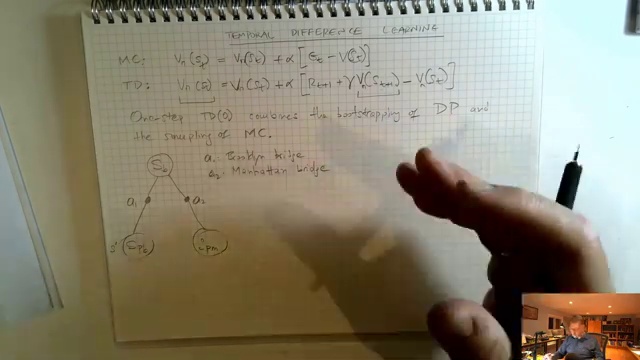 TEMPORAL DIFFERENCE LEARNING
MC: Vπ(St) = Vπ(St) + α [Gt − V(St)]
TD: Vπ(s) = Vπ(St) + α [Rt+1 + γVπ(St+1) − Vπ(St)]
One-step TD(0) combines the bootstrapping of DP and
the sampling of MC.
a₁ Brooklyn bridge
a₂ Manhattan bridge
a₁ a₂